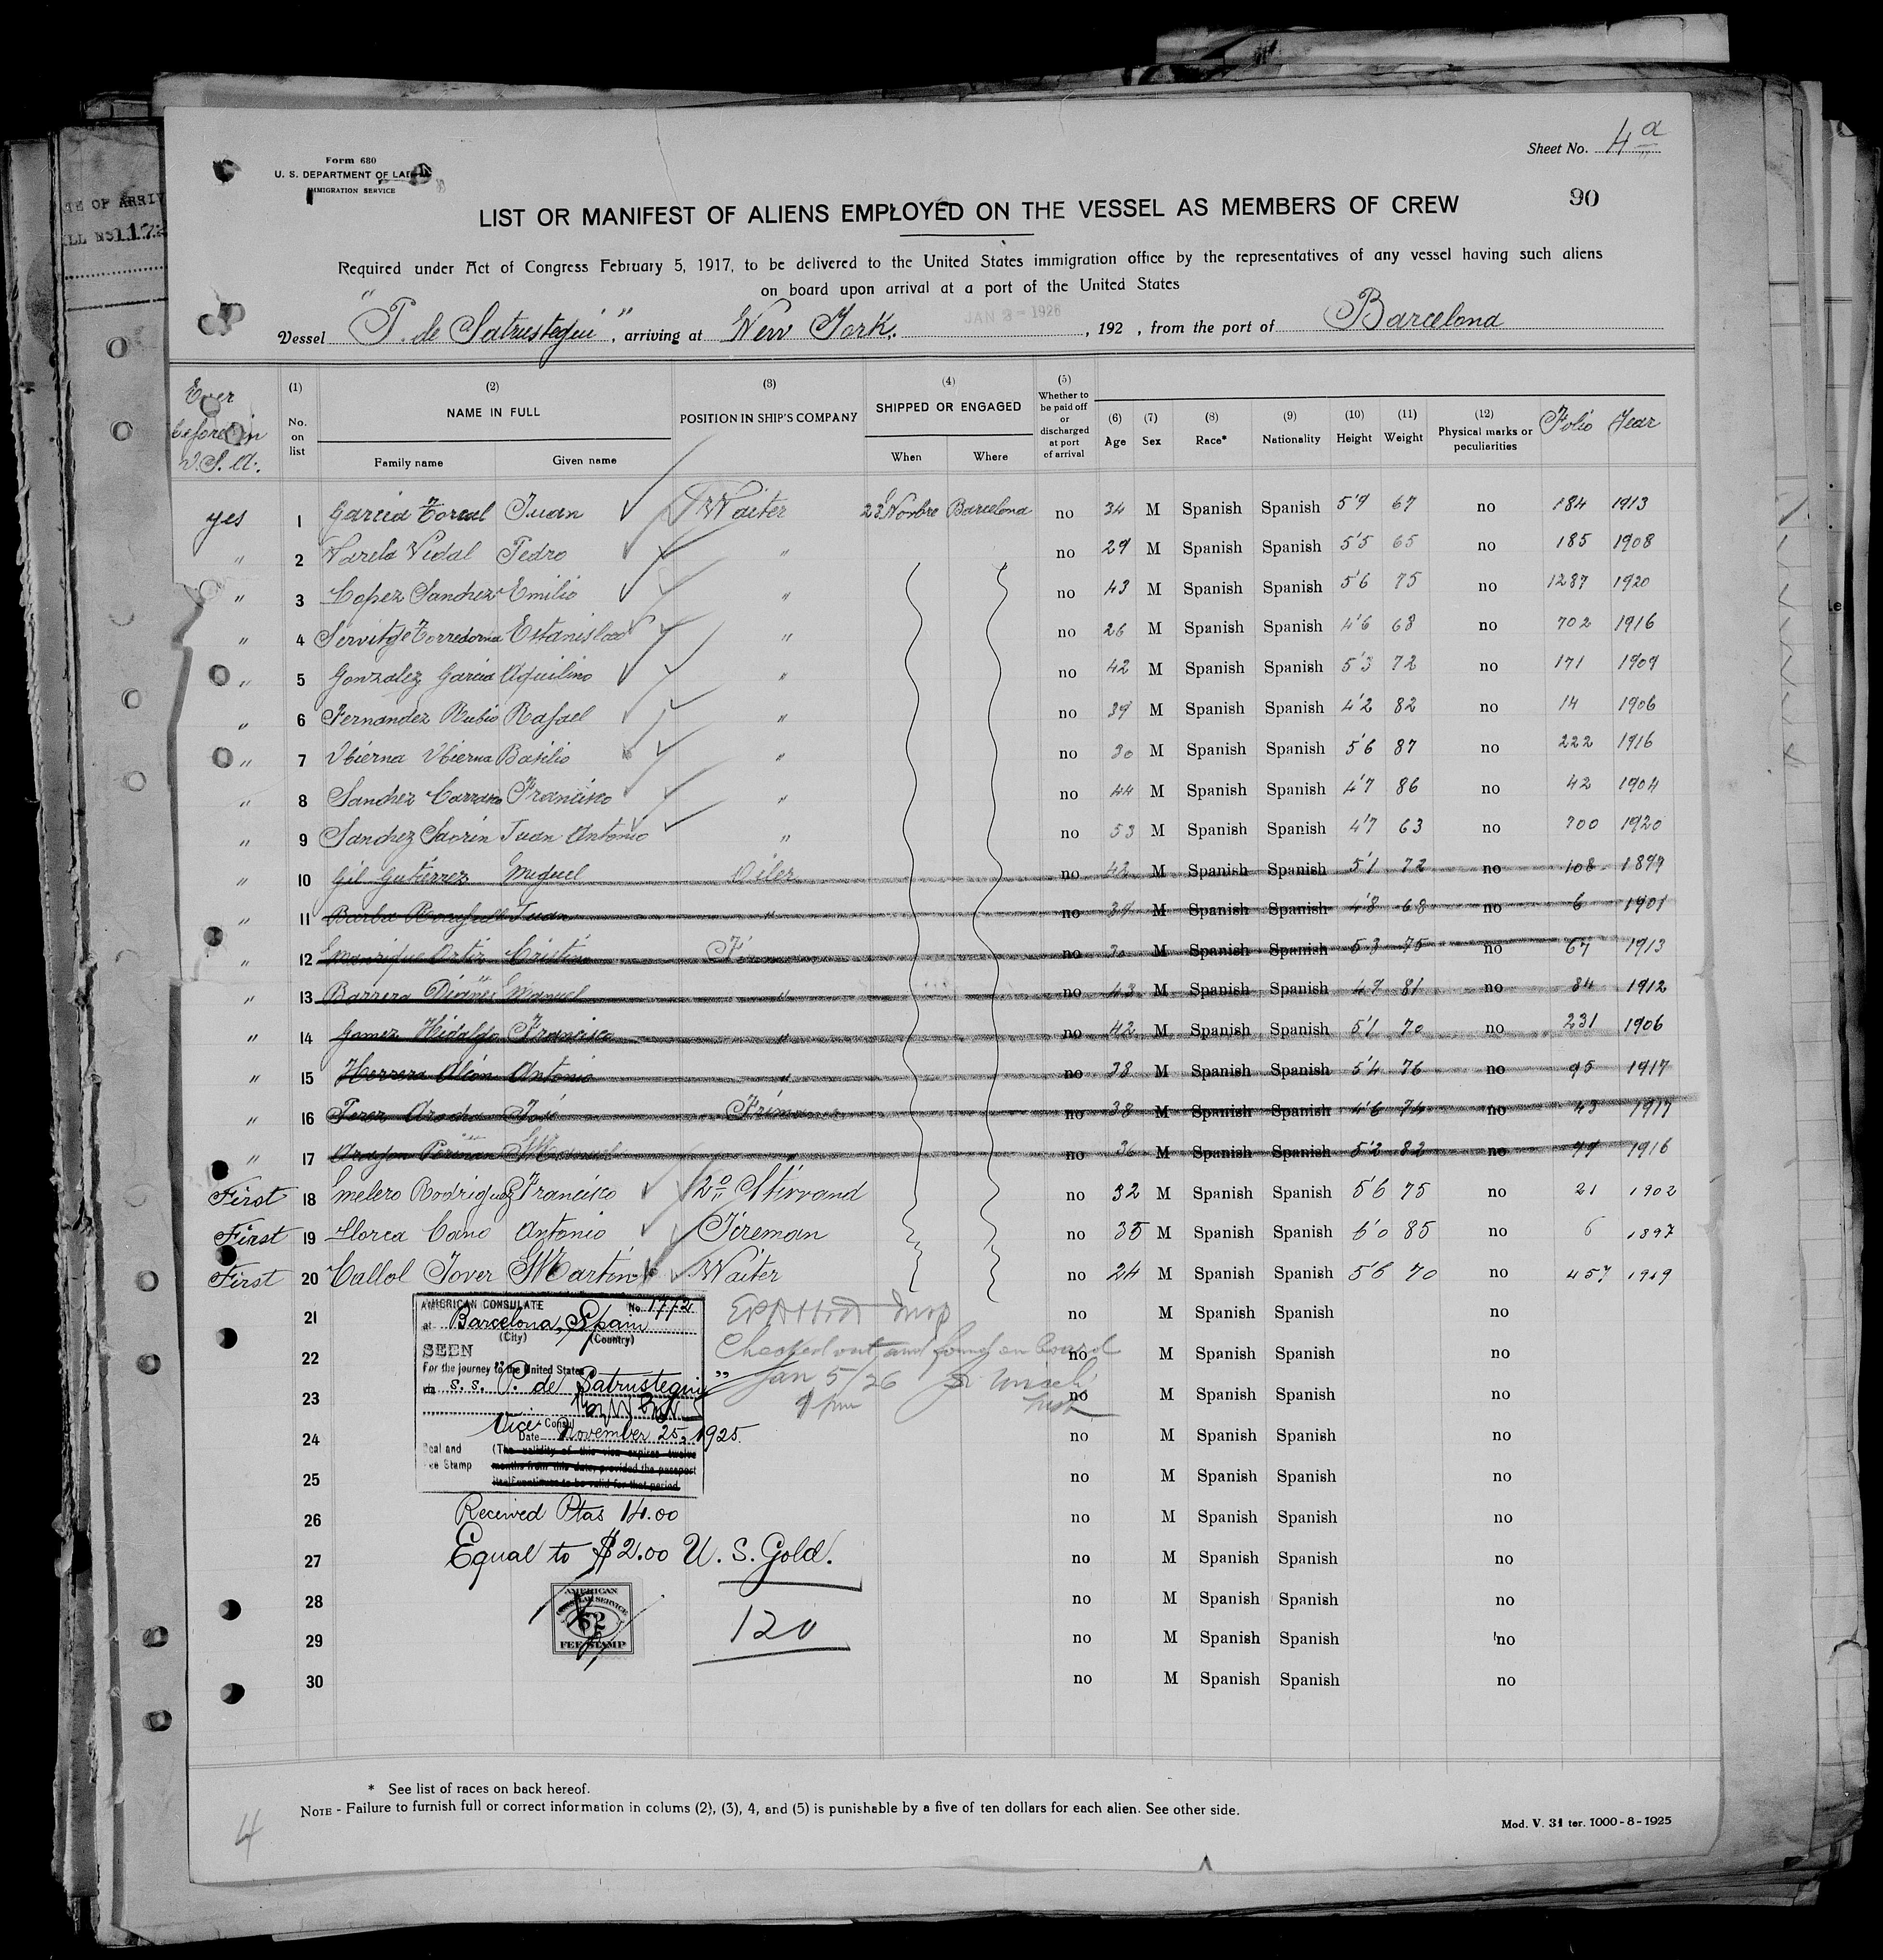 Sheet No. 4 a
Form 680
U. S. DEPARTMENT OF LABOR
IMMIGRATION SERVICE
90
LIST OR MANIFEST OF ALIENS EMPLOYED ON THE VESSEL AS MEMBERS OF CREW
Required under Act of Congress February 5, 1917, to be delivered to the United States immigration office by the representatives of any vessel having such aliens
on board upon arrival at a port of the United States
Vessel "P. de Satrustegui", arriving at New York. JAN 3 - 1926, 192 , from the port of Barcelona
Ever before in U.S.A. (1) No. on list (2) NAME IN FULL Family name Given name (3) POSITION IN SHIP'S COMPANY (4) SHIPPED OR ENGAGED When Where (5) Whether to be paid off or discharged at port of arrival (6) Age (7) Sex (8) Race* (9) Nationality (10) Height (11) Weight (12) Physical marks or peculiarities Folio Year
yes 1 Garcia Juan Waiter 23 Novbre Barcelona no 34 M Spanish Spanish 5'7 67 no 184 1913
" 2 Varela Vidal Pedro " no 29 M Spanish Spanish 5'5 65 no 185 1908
" 3 Lopez Sanchez Emilio " no 43 M Spanish Spanish 5'6 75 no 1287 1920
" 4 Servitge Torredorna Estanislao " no 26 M Spanish Spanish 4'6 68 no 702 1916
" 5 Gonzalez Garcia Aquilino " no 42 M Spanish Spanish 5'3 72 no 171 1909
" 6 Fernandez Rubio Rafael " no 39 M Spanish Spanish 4'2 82 no 14 1906
" 7 Ubierna Ubierna Basilio " no 30 M Spanish Spanish 5'6 87 no 222 1916
" 8 Sanchez Carrasco Francisco " no 44 M Spanish Spanish 4'7 86 no 42 1904
" 9 Sanchez Saorin Juan Antonio " no 53 M Spanish Spanish 4'7 63 no 700 1920
" 10 Gil Gutierrez Miguel Oiler no 42 M Spanish Spanish 5'1 72 no 108 1899
" 11 Barba Juan " no 39 M Spanish Spanish 4'8 68 no 6 1901
" 12 Manrique Ortiz Cristino Fireman no 30 M Spanish Spanish 5'3 75 no 67 1913
" 13 Barrera Manuel " no 43 M Spanish Spanish 4'7 81 no 84 1912
" 14 Gomez Hidalgo Francisco " no 42 M Spanish Spanish 5'1 70 no 231 1906
" 15 Herrera Antonio " no 38 M Spanish Spanish 5'4 76 no 95 1917
" 16 Perez Arocha José no 38 M Spanish Spanish 4'6 74 no 43 1917
" 17 Aragon Manuel " no 36 M Spanish Spanish 5'2 82 no 1916
First 18 Melero Rodriguez Francisco 2º Stirvand no 32 M Spanish Spanish 5'6 75 no 21 1902
First 19 Llorca Cano Antonio Fireman no 35 M Spanish Spanish 6'0 85 no 6 1897
First 20 Callol Jover Martin Waiter no 24 M Spanish Spanish 5'6 70 no 457 1919
21 no M Spanish Spanish no
22 no M Spanish Spanish no
23 no M Spanish Spanish no
24 no M Spanish Spanish no
25 no M Spanish Spanish no
26 no M Spanish Spanish no
27 no M Spanish Spanish no
28 no M Spanish Spanish no
29 no M Spanish Spanish no
30 no M Spanish Spanish no
AMERICAN CONSULATE No. 1772
at Barcelona, Spain
(City) (Country)
SEEN
For the journey to the United States
via s. s. "P. de Satrustegui"
Vice Consul
Date November 25, 1925.
Seal and Fee Stamp (The validity of this visa expires twelve
months from this date, provided the passport
itself continues to be valid for that period
Checked out and found on board
Jan 5/26
9 pm
Received Ptas 14.00
Equal to $2.00 U. S. Gold.
AMERICAN
CONSULAR SERVICE
$2
FEE STAMP
120
* See list of races on back hereof.
NOTE - Failure to furnish full or correct information in colums (2), (3), 4, and (5) is punishable by a five of ten dollars for each alien. See other side.
Mod. V. 31 ter. 1000-8-1925
4